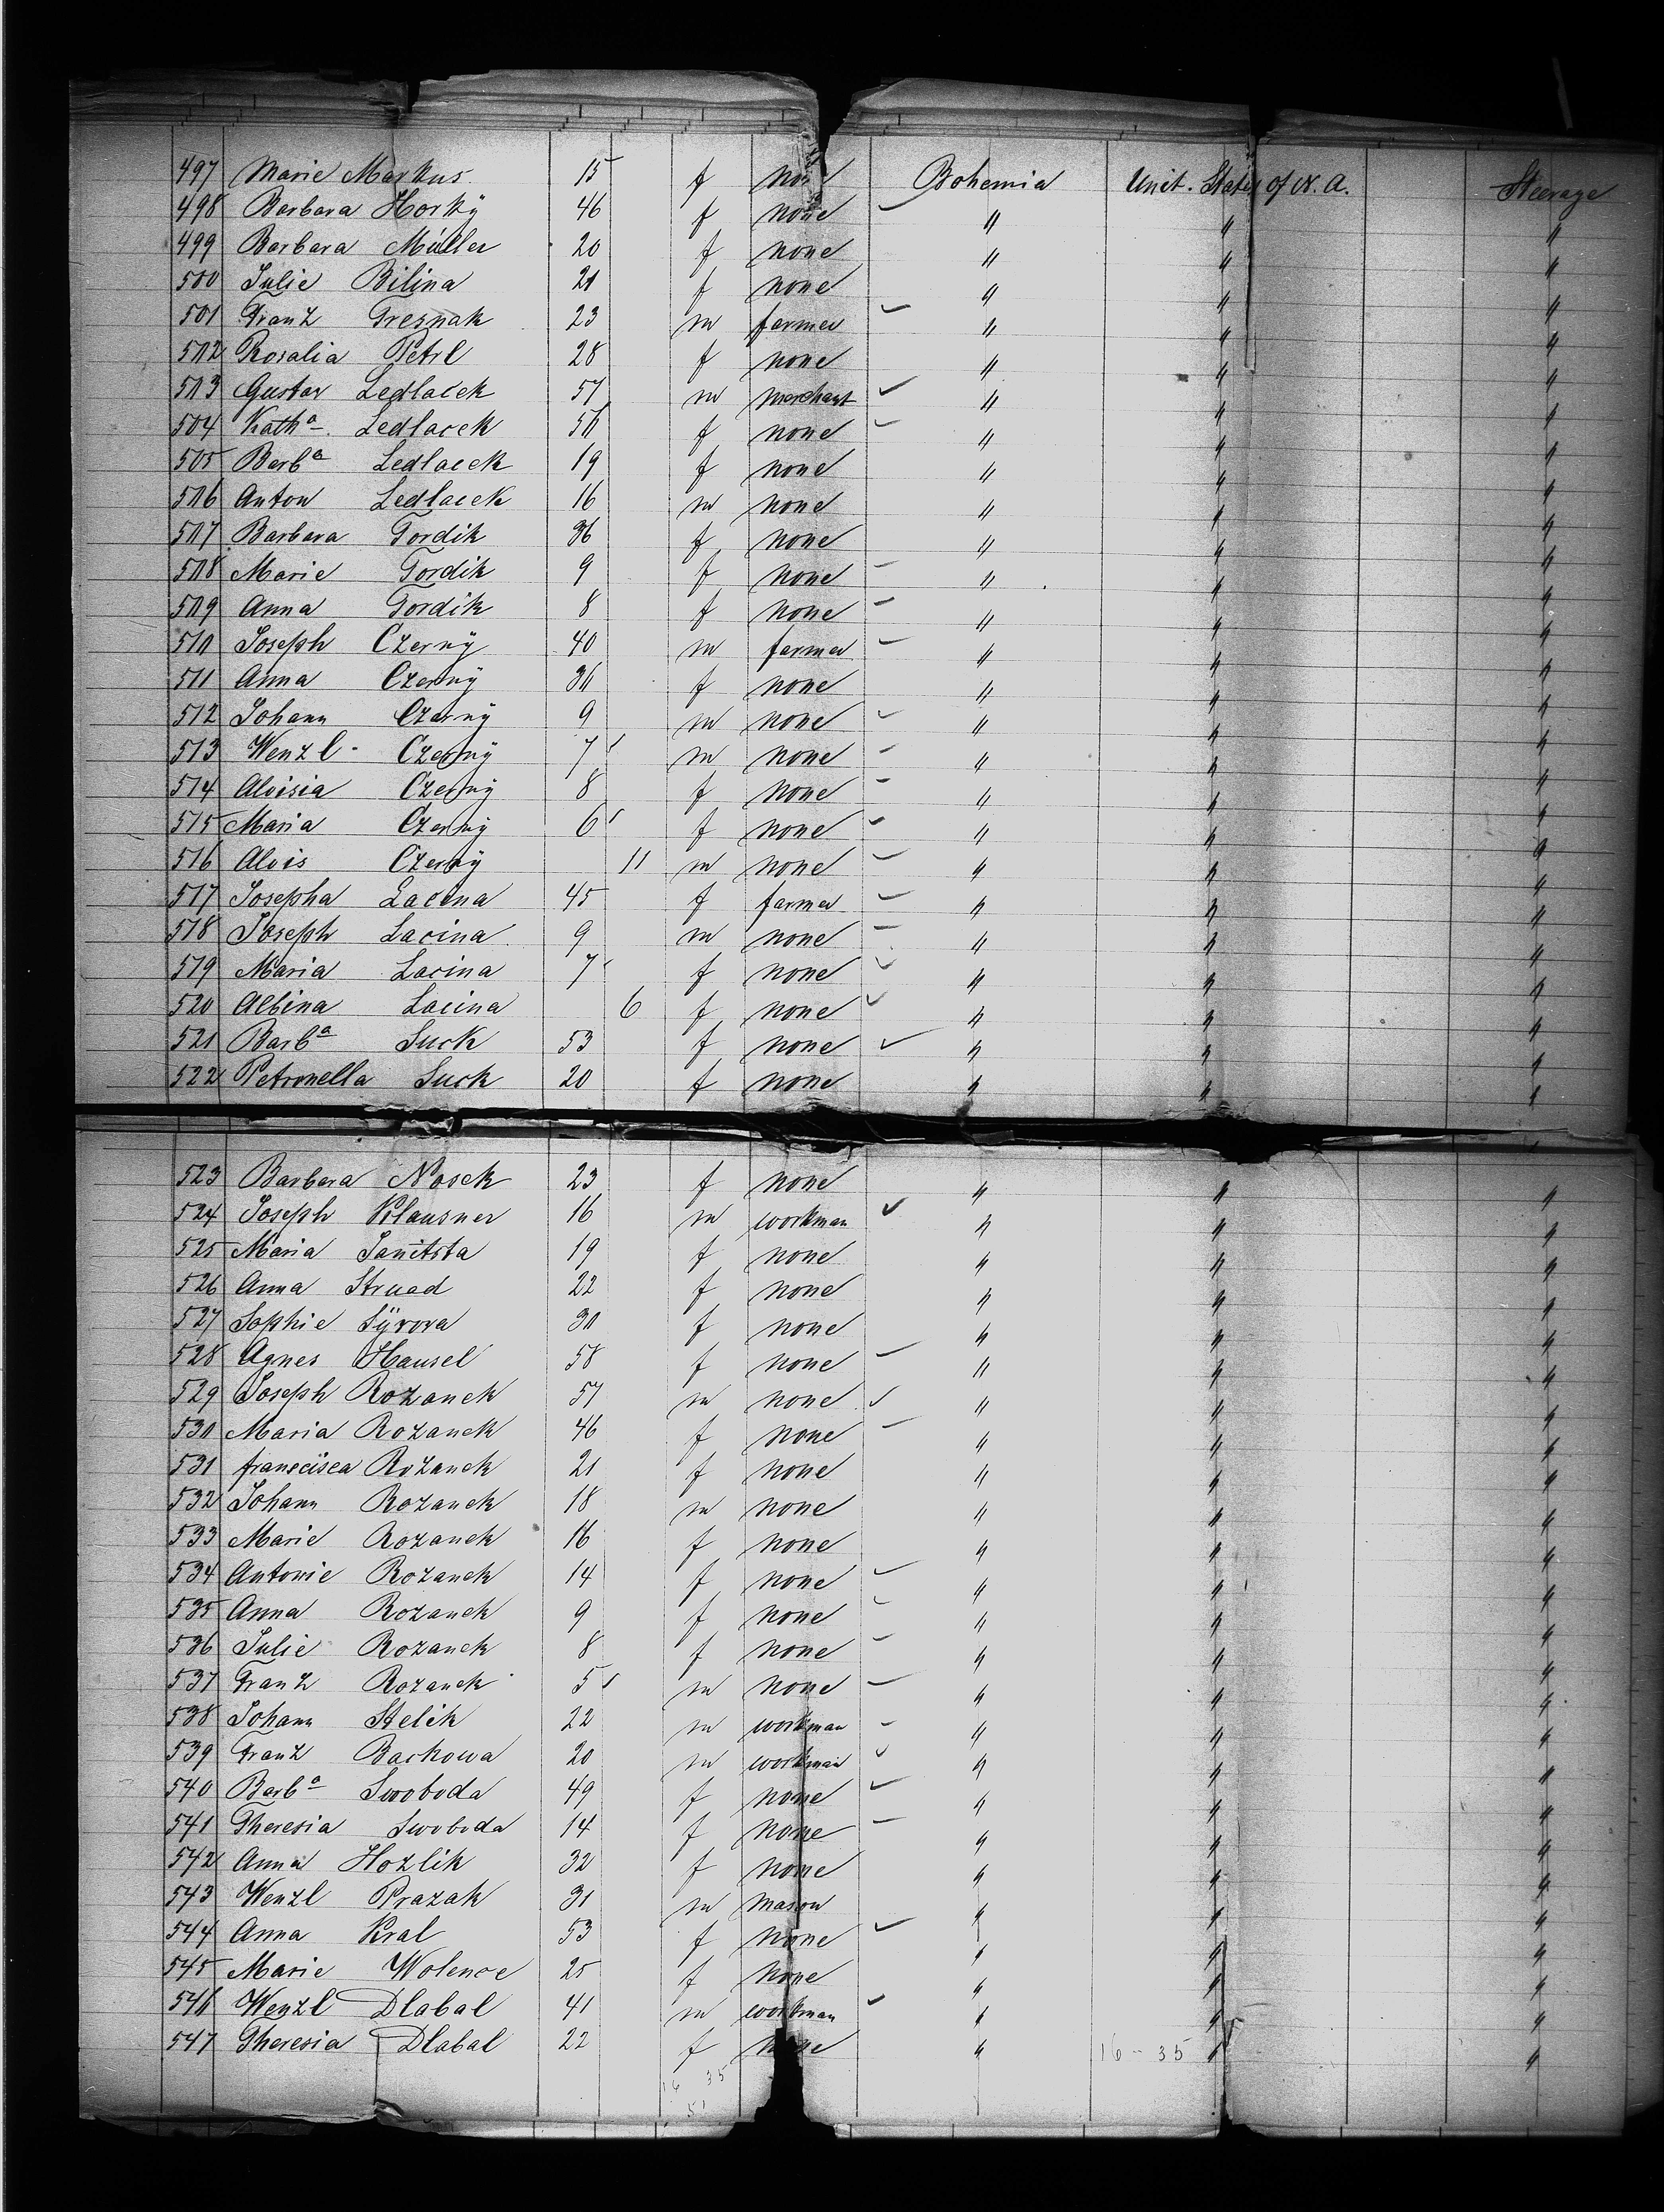 497 Marie Markus 15 f none Bohemia Unit. States of N. A. Steerage
498 Barbara Horkÿ 46 f none " " "
499 Barbara Müller 20 f none " " "
500 Julie Bilina 21 f none " " "
501 Franz Tresnak 23 m farmer " " "
502 Rosalia Petrl 28 f none " " "
503 Gustav Sedlacek 51 m merchant " " "
504 Kath^a Sedlacek 50 f none " " "
505 Barb^a Sedlacek 19 f none " " "
506 Anton Sedlacek 16 m none " " "
507 Barbara Tordik 36 f none " " "
508 Marie Tordik 9 f none " " "
509 Anna Tordik 8 f none " " "
510 Joseph Czernÿ 40 m farmer " " "
511 Anna Czernÿ 30 f none " " "
512 Johann Czernÿ 9 m none " " "
513 Wenzl Czernÿ 7 m none " " "
514 Aloisia Czernÿ 8 f none " " "
515 Maria Czernÿ 6 f none " " "
516 Alois Czernÿ 11 m none " " "
517 Josepha Lacina 45 f farmer " " "
518 Joseph Lacina 9 m none " " "
519 Maria Lacina 7 f none " " "
520 Albina Lacina 6 f none " " "
521 Barb^a Suck 53 f none " " "
522 Petronella Suck 20 f none " " "
523 Barbara Nosek 23 f none " " "
524 Joseph Klausner 16 m workman " " "
525 Maria 19 f none " " "
526 Anna Strnad 22 f none " " "
527 Sophie Sÿrova 30 f none " " "
528 Agnes Hausel 58 f none " " "
529 Joseph Rozanek 51 m none " " "
530 Maria Rozanek 46 f none " " "
531 Franscisca Rozanek 21 f none " " "
532 Johann Rozanek 18 m none " " "
533 Marie Rozanek 16 f none " " "
534 Antonie Rozanek 14 f none " " "
535 Anna Rozanek 9 f none " " "
536 Julie Rozanek 8 f none " " "
537 Franz Rozanek 5 m none " " "
538 Johann Stelik 22 m workman " " "
539 Franz Backowa 20 m workman " " "
540 Barb^a Swoboda 49 f none " " "
541 Theresia Swoboda 14 f none " " "
542 Anna Hozlik 32 f none " " "
543 Wenzl Prazak 31 m mason " " "
544 Anna Kral 53 f none " " "
545 Marie Wolence 25 f none " " "
546 Wenzl Dlabal 41 m workman " " "
547 Theresia Dlabal 22 f none " 16-35 " "
16 35
51